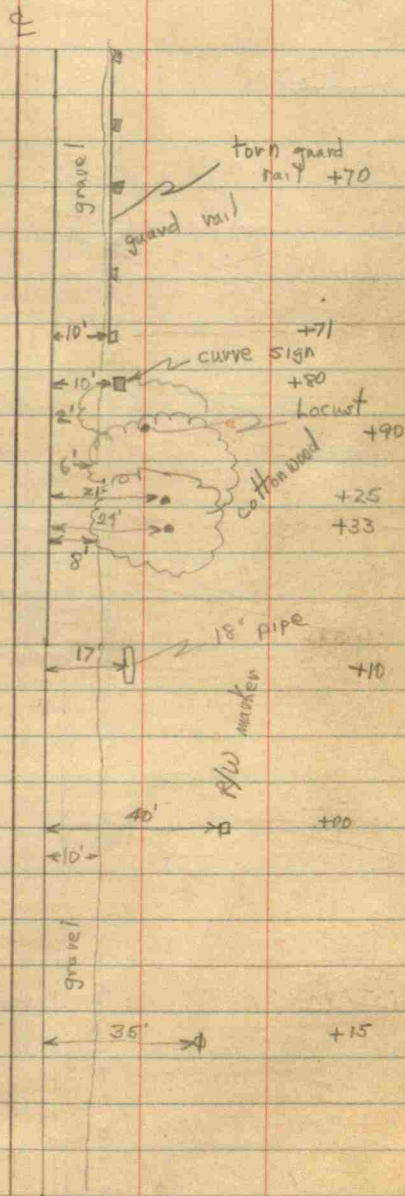 ℄
gravel
torn guard
rail +70
guard rail
10' +71
curve sign
10' +80
2' Locust
+90
6'
cottonwood
21' +25
24' +33
8'
18" pipe
17' +10
R/W marker
40' +00
10'
gravel
35' +15